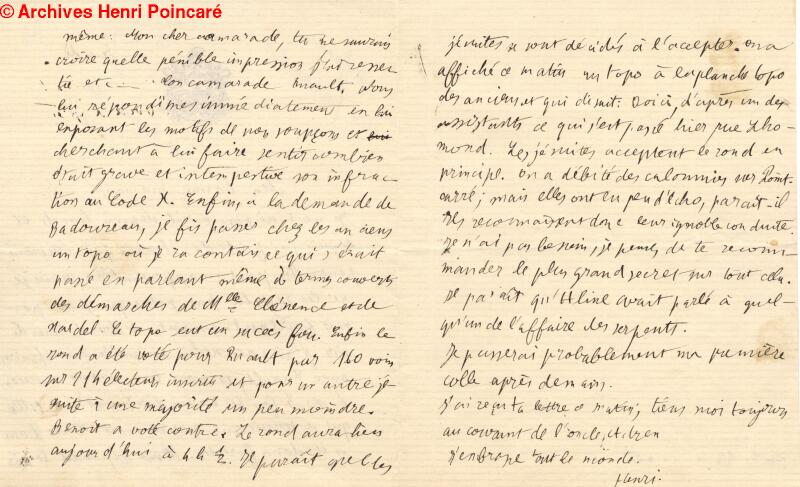 © Archives Henri Poincaré
même : Mon cher camarade, tu ne saurais
croire quelle pénible impression j'ai ressen
tie et c. — ton camarade Ruault. Nous
lui répondîmes immédiatement en lui
exposant les motifs de nos soupçons et
cherchant à lui faire sentir combien
était grave et intempestive son infrac
tion au Code X. Enfin, à la demande de
Badoureau, je fis passer chez les anciens
un topo où je racontais ce qui s'était
passé en parlant même à termes couverts
des démarches de Mlle Clémence et de
Hardel. Le topo eut un succès fou. Enfin le
rond a été voté pour Ruault par 160 voix
sur 214 électeurs inscrits et pour un autre jé
suite à une majorité un peu moindre.
Benoit a voté contre. Le rond aura lieu
aujourd'hui à 4 h ½. Il paraît que les
jésuites se sont décidés à l'accepter. On a
affiché ce matin un topo à la planche topo
des anciens et qui disait : Voici, d'après un des
assistants ce qui s'est passé hier rue Lho-
mond. Les jésuites acceptent le rond en
principe. On a débité des calomnies sur Point-
carré ; mais elles ont eu peu d'écho, paraît-il
Ils reconnaissent donc leur ignoble conduite.
Je n'ai pas besoin, je pense, de te recom
mander le plus grand secret sur tout cela.
Il paraît qu'Hline avait parlé à quel-
qu'un de l'affaire des serpents.
Je passerai probablement ma première
colle après demain.
J'ai reçu ta lettre ce matin, tiens moi toujours
au courant de l'oncle, et bien
J'embrasse tout le monde.
Henri.